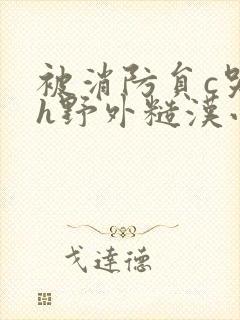 被消防員c
h野外糙漢
戈達德